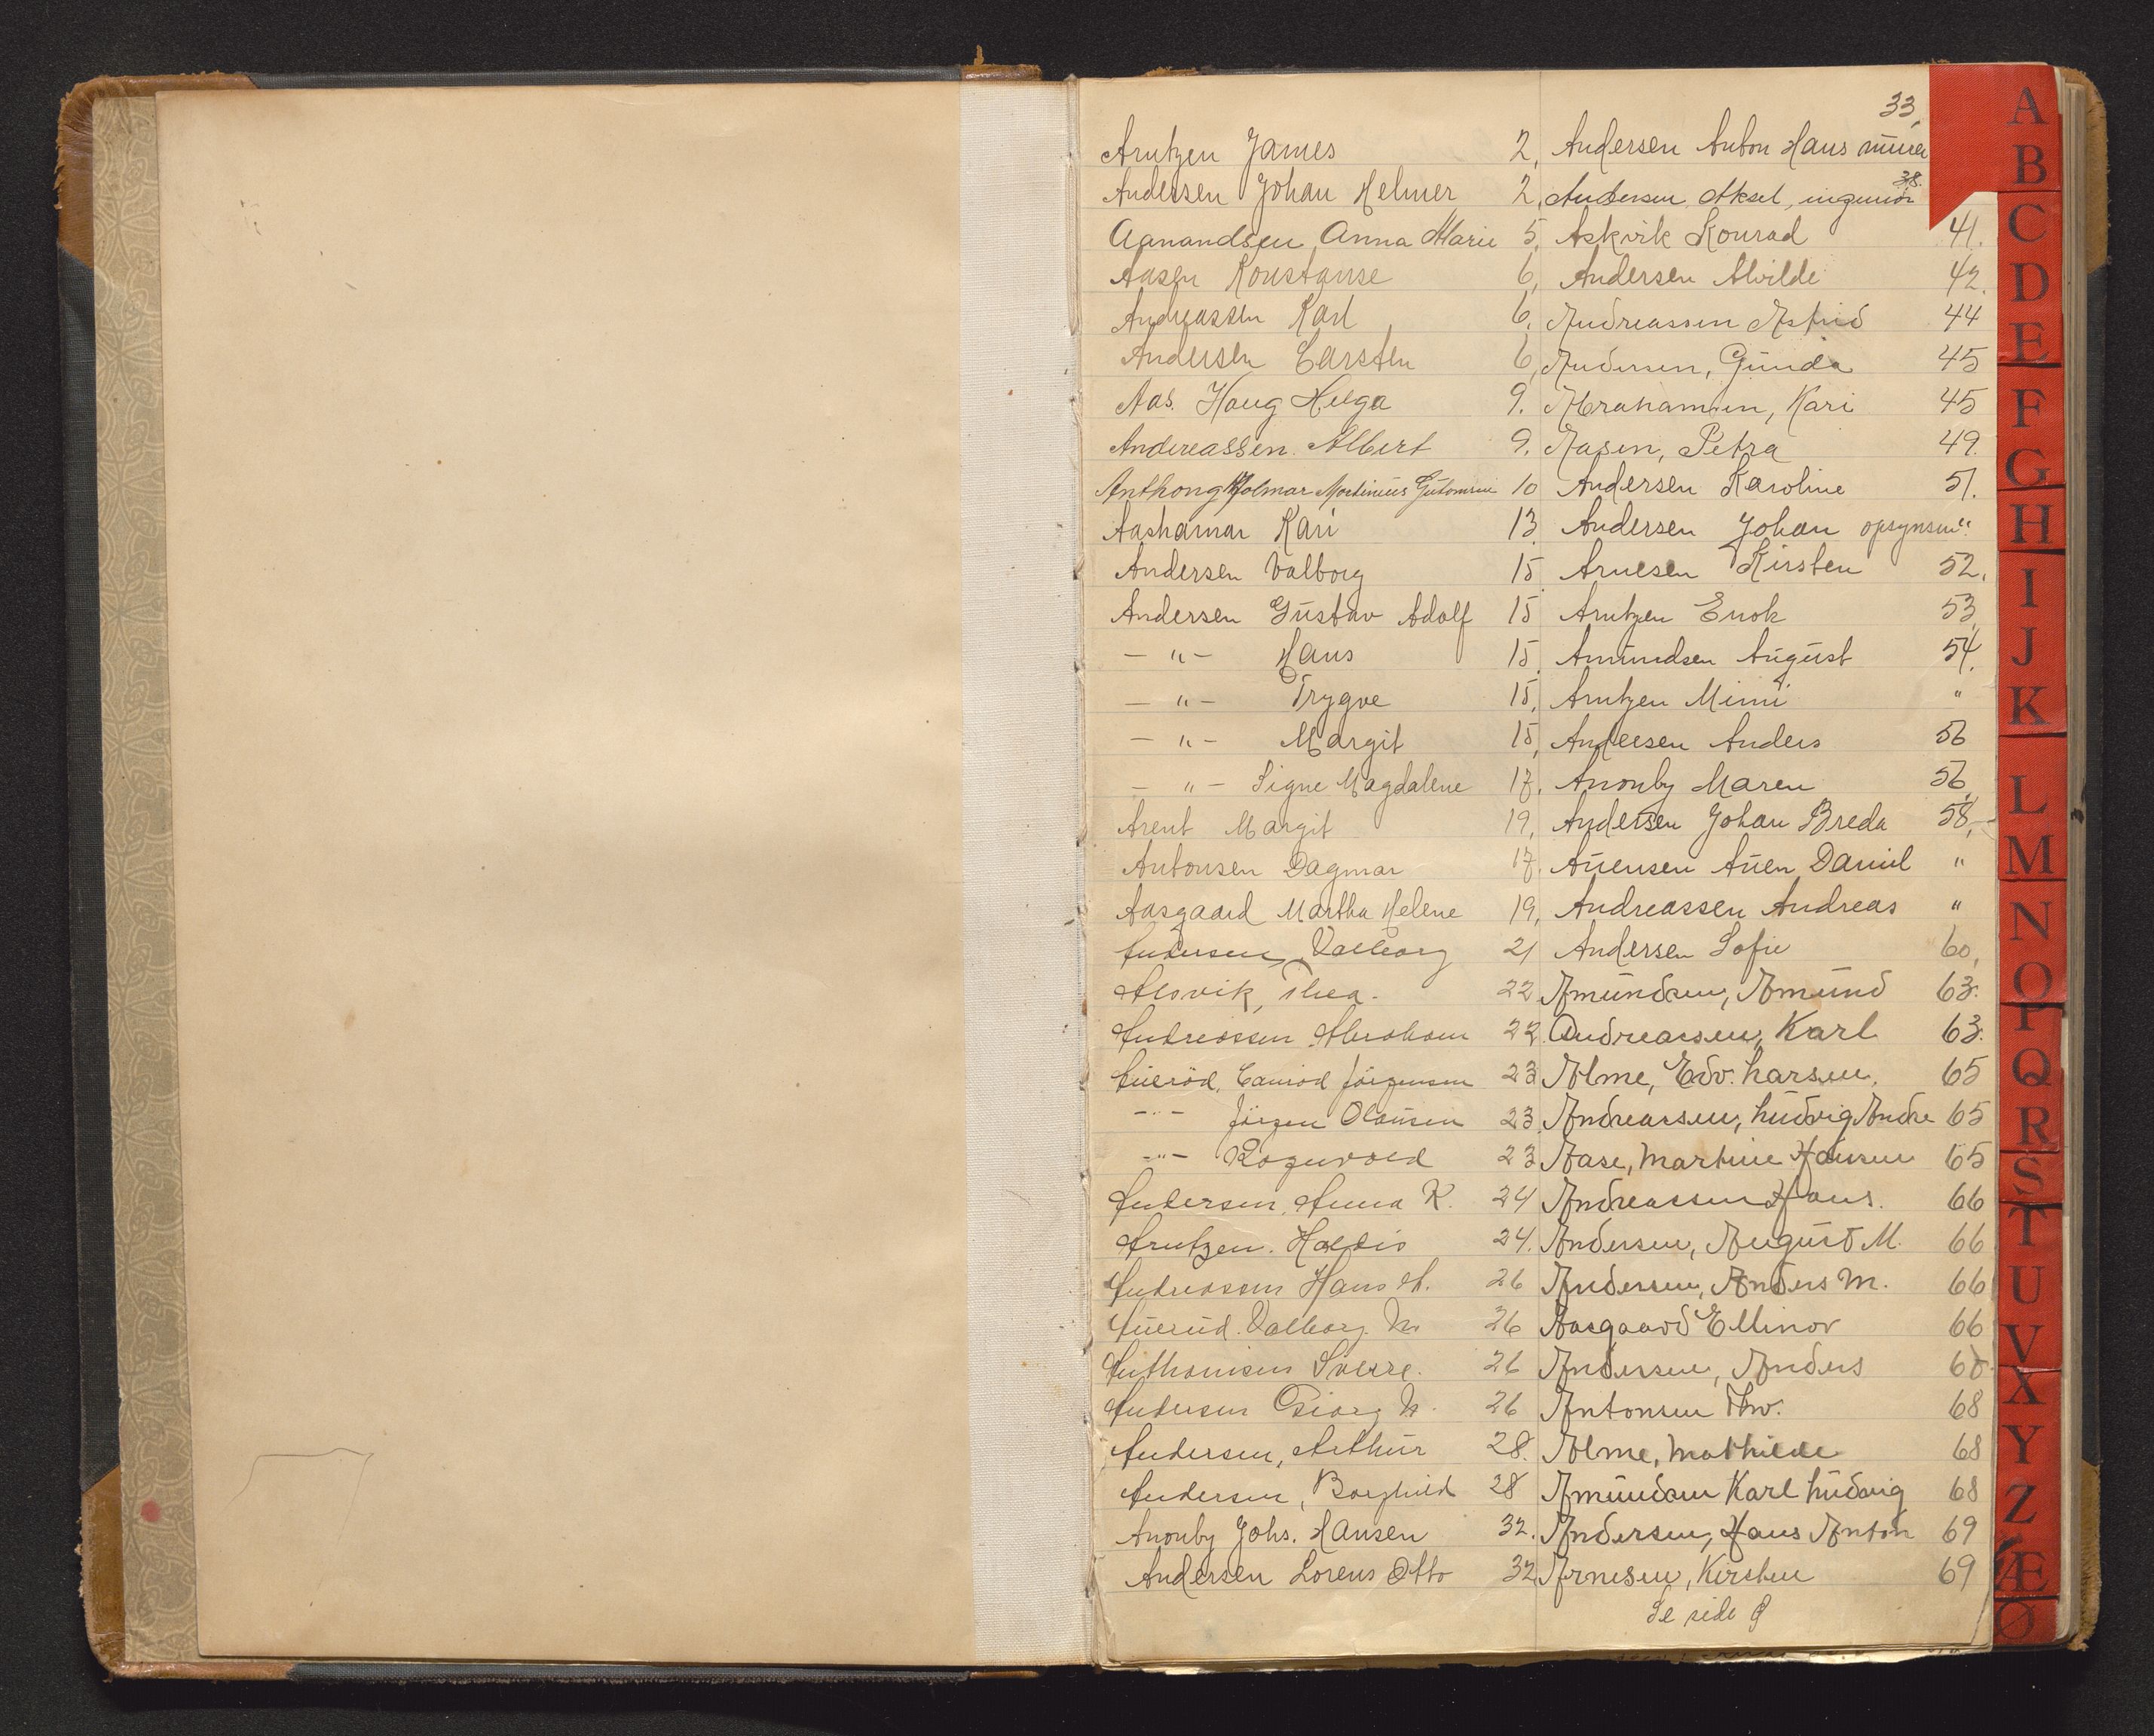 Arntzen James 2,
Andersen Johan Helmer 2,
Aanandsen Anna Marie 5,
Aasen Konstanse 6,
Andreassen Karl 6,
Andersen Carsten 6,
Aas. Haug Helga 9.
Andereassen. Albert 9.
Hjolmar Martinius 10
Aashamar Kari 13.
Andersen Valborg 15
Andersen Gustav Adolf 15
— " — Hans 15
— " — Trygve 15,
— " — Margit 15,
— " — Signe Magdalene 17.
Arent Margit 19,
Antonsen Dagmar 17.
Aasgaard Martha Helene 19,
Andersen, Valborg 21
Alsvik, Thea. 22
Andreassen Abraham 22.
Auerød, Jörgensen 23
— " — Jörgen Olausen 23.
— " — Rognvald 23
Andersen, Anna K. 24
Arntzen. Haldis 24.
Andreassen Hans A. 26
Auerud. Valborg. M. 26
Anthonisen Sverre. 26
Andersen Georg M. 26
Andersen, Arthur 28.
Andersen, Borghild 28
Anonby Johs. Hansen 32.
Andersen Lorens Otto 32
33,
Andersen Anton Hans murer
38.
Andersen Aksel, ingeniör
Askvik Konrad 41.
Andersen Alvilde 42.
Andreassen Astrid 44
Andersen, Gunda 45
Abrahamsen, Kari 45
Aasen, Petra 49.
Andersen Karoline 51.
Andersen Johan opsynsm "
Arnesen Kirsten 52.
Arntzen Enok 53
Amundsen August 54.
Arntzen Mimi "
Andersen Anders 56
Anonby Maren 56
Andersen Johan Breda 58,
Auensen Auen Daniel "
Andreassen Andreas "
Andersen Sofie 60,
Amundsen, Amund 63.
Andreassen, Karl 63.
Alme, Edv. Larsen. 65
Andreassen, Ludvig Andre 65
Aase, Martine Hansen 65
Andreassen Hans. 66
Andersen, August M. 66
Andersen, Anders M. 66
Aasgaard Ellinor 66
Andersen, Anders
Antonsen Thv. 68
Alme, Mathilde 68
Amundsen Karl Ludvig 68
Andersen, Hans Anton 69
Arnesen, Kirsten 69
Se side
A
B
C
D
E
F
G
H
I
J
K
L
M
N
O
P
Q
R
S
T
U
V
X
Y
Z
Æ
Ø